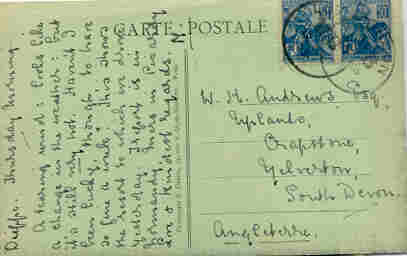 CARTE POSTALE
Dieppe. Thursday Morning.
A tearing wind: looks like
a change in the weather: but
it's still very hot. Haven't I
been lucky, though, to have
so fine a week. This shows
the resort to which we drove
yesterday. Tréport is in
Normandy, Mers in Picardy
kindest regards,
W. H. Andrews Esq.
Uplands,
Crapstone,
Yelverton,
South Devon.
Angleterre.